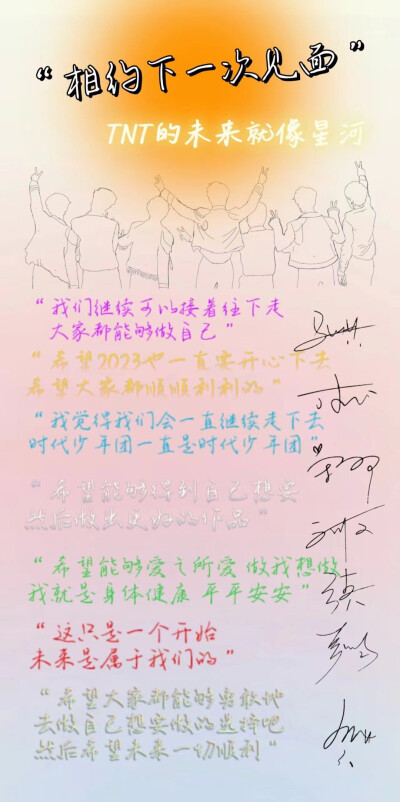 “相约下一次见面”
TNT的未来就像星河
“我们继续可以接着往下走
大家都能够做自己”
“希望2023也一直要开心下去
希望大家都顺顺利利的”
“我觉得我们会一直继续走下去
时代少年团一直是时代少年团”
“希望能够得到自己想要
然后做出更好的作品”
“希望能够爱之所爱 做我想做
我就是身体健康 平平安安”
“这只是一个开始
未来是属于我们的”
“希望大家都能够勇敢地
去做自己想要做的选择吧
然后希望未来一切顺利”